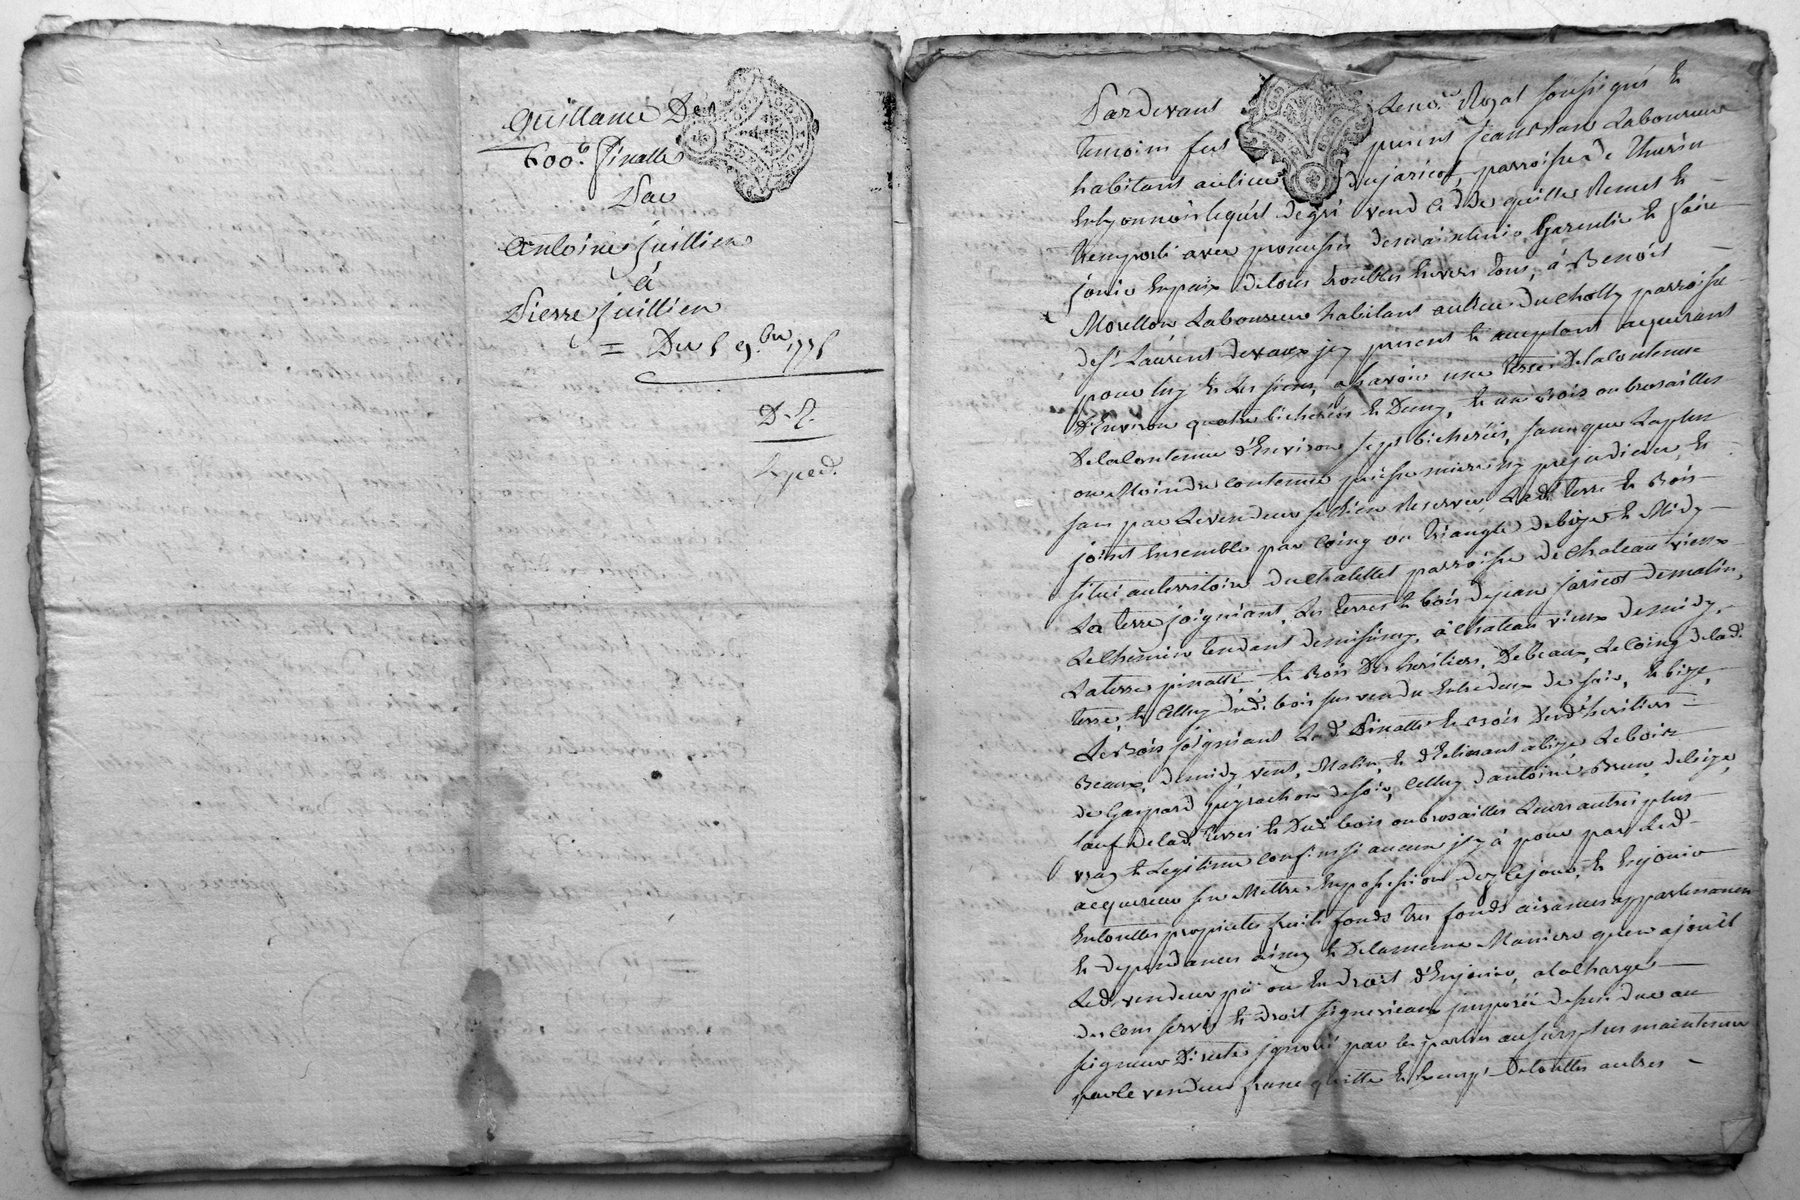 Quittance De
600.# finalle
Par
Antoine Juillien
à
Pierre Juillien
= Du 5 9.bre 1775
D. 2.
Exped.
Pardevant Le no.re Royal soussigné et
temoins fut present Jean Laboureur
habitant au lieu du jaricot, parroisse de Thurin
en lyonnois lequel de gré vend cedde quitte Remet et
transporte avec promesse de maintenir Garentir et faire
jouir en paix de tous troubles envers tous, à Benoit
Morellon Laboureur habitant au lieu du Cholly parroisse
de St Laurent de vaux icy present et acceptant acquerant
pour luy et Les siens, a sçavoir une terre De la contenue
d'Environ quatre bicherées et Demy, et un Bois ou brosailles
De la Contenue d'Environ sept bicherées, sans que La plus
ou Moindre contenue puisse nuire ny prejudicier, et
sans par Le vendeur se Rien Reserver, Lad. terre et Bois
joint Ensemble par Coing ou triangle de bize et Midy
situé au territoire du Chatellet parroisse de Chateau vieux
La terre joignant, Les terres et bois de jean jaricot de matin,
Le Chemin tendant de à Chateau vieux de midy,
La terre pinatte et Bois Des heritiers, De beaux, Le Coing de lad.
terre, et Celluy dud. bois sus vendu Entre deux de soir, et bize,
Le Bois joignant Lad. Pinatte et Bois Desd. heritiers
Beaux, de midy vent, Matin, et a bize Le bois
de Gaspard de soir, Celluy d'antoine Brun, de bize,
sauf de lad. terre et Dud. bois ou brosailles Leurs autres plus
vray et Legitime Confins si aucun il y à pour par Led.
acquereur s'en Mettre En possession dez Ce jour, et En jouir
En touttes proprietés fruits fonds tres fonds aisances appartenances
et dependances ainsy et De la meme Maniere qu'en a jouit
Led. vendeur pû ou En droit d'En jouir, a la charge
des Cens servis et droit seigneuriaux imposés dessus due au
seigneur Directe ignoré par les parties au surplus maintenue
par le vendeur franc quitte et Exempt De touttes autres